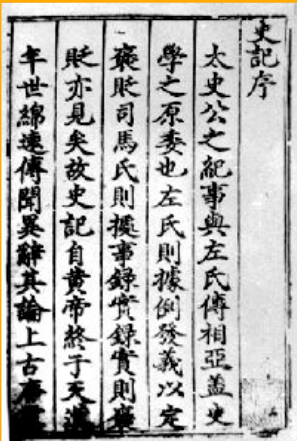 史記序
太史公之紀事與左氏傳相亞蓋史
學之原委也左氏則據例發義以定
褒貶司馬氏則據事錄實錄實則褒
貶亦見矣故史記自黃帝終于天漢
年世綿遠傳聞異辭其論上古